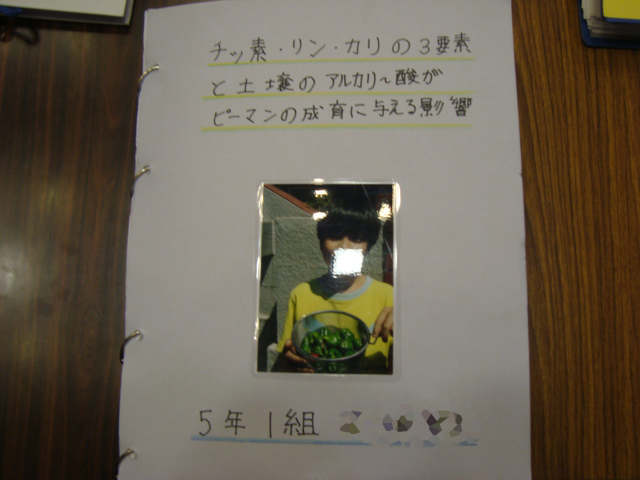 チッ素・リン・カリの3要素
と土壌のアルカリ～酸が
ピーマンの成育に与える影響
5年1組